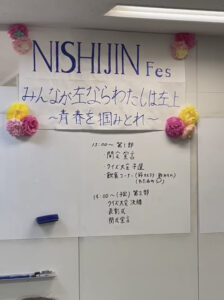 NISHIJIN Fes
みんなが左ならわたしは左上
～青春を掴みとれ～
13:00～ 第1部
開会宣言
クイズ大会予選
15:00～(予定) 第2部
クイズ大会決勝
表彰式
閉会宣言